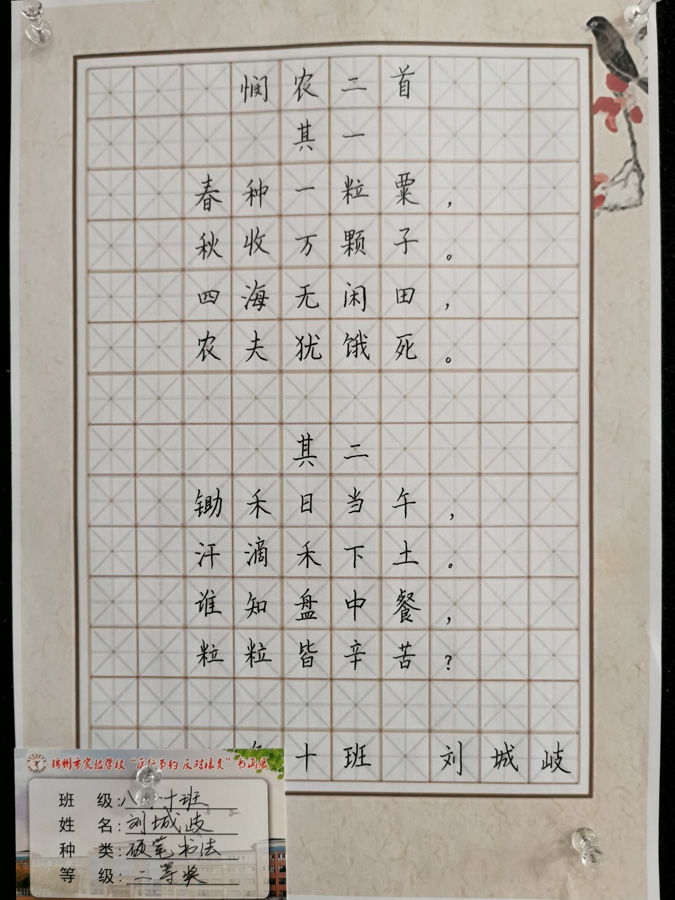 悯农二首
其一
春种一粒粟，
秋收万颗子。
四海无闲田，
农夫犹饿死。
其二
锄禾日当午，
汗滴禾下土。
谁知盘中餐，
粒粒皆辛苦？
十班 刘城岐
锦州市实验学校“厉行节约 反对浪费”书画展
班 级：八 十班
姓 名：刘城岐
种 类：硬笔书法
等 级：二等奖